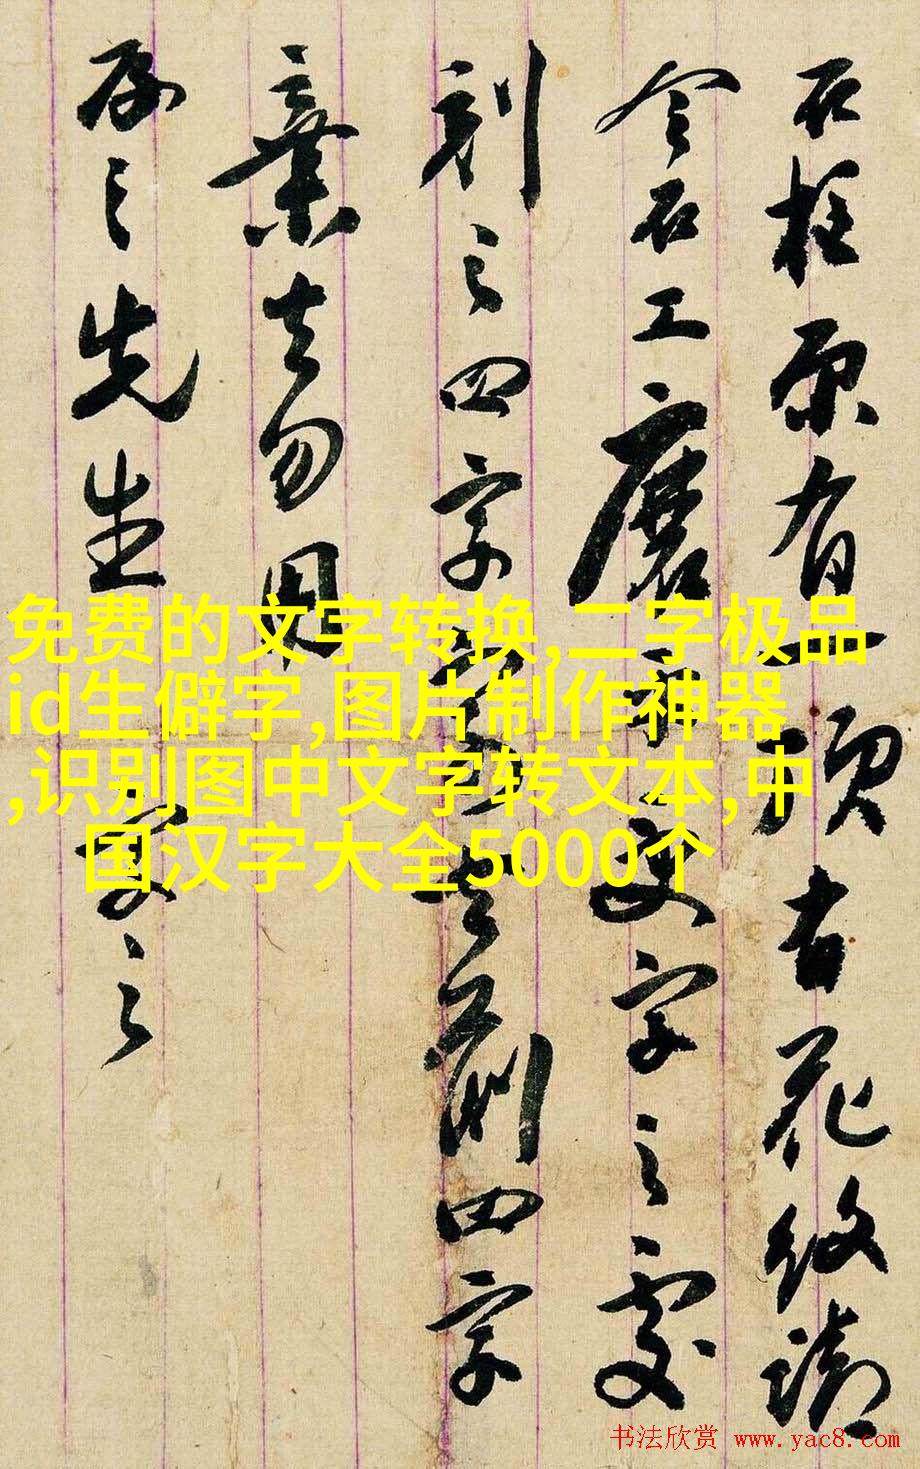 石柱原有一古花紋請
令石工磨字之處
刻之四字去前四字
棄去勿用
之先生之
免费的文字转换,二字极品
id生僻字,图片制作神器
,识别图中文字转文本,中
国汉字大全5000个
书法欣赏 www.yac8.com